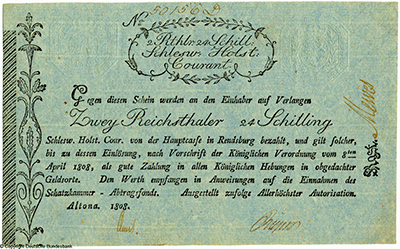 No 50156
2 Rthlr. 24 Schill.
Schlesw. Holst.
Courant.
Gegen diesen Schein werden an den Einhaber auf Verlangen
Zwey Reichsthaler 24 Schilling
Schlesw. Holst. Cour. von der Hauptcasse in Rendsburg bezahlt, und gilt solcher,
bis zu dessen Einlösung, nach Vorschrift der Königlichen Verordnung vom 8ten
April 1808, als gute Zahlung in allen Königlichen Hebungen in obgedachter
Geldsorte. Den Werth empfangen in Anweisungen auf die Einnahmen des
Schatzkammer-Abtragsfonds. Ausgestellt zufolge Allerhöchster Autorisation.
Altona. 1808.
© Copyright Deutsche Bundesbank